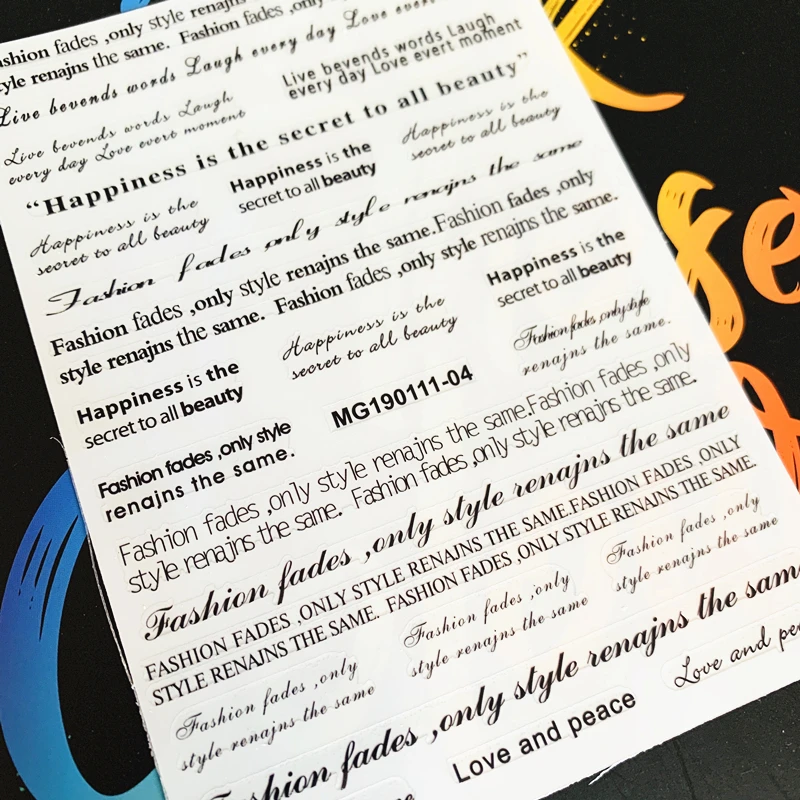 Fashion fades ,only style renajns
style renajns the same. Fashion fades ,only
Live bevends words Laugh every day Love evert
Live bevends words Laugh
every day Love evert moment
Live bevends words Laugh
every day Love evert moment
“Happiness is the secret to all beauty”
Happiness is the
secret to all beauty
Happiness is the
secret to all beauty
Happiness is the
secret to all beauty
Fashion fades only style renajns the same
Fashion fades ,only style renajns the same.Fashion fades ,only
style renajns the same. Fashion fades ,only style renajns the same.
Happiness is the
secret to all beauty
Happiness is the
secret to all beauty
Fashion fades ,only style
renajns the same.
Happiness is the
secret to all beauty
MG190111-04
Fashion fades ,only style
renajns the same.
Fashion fades ,only style renajns the same.Fashion fades ,only
style renajns the same. Fashion fades ,only style renajns the same.
Fashion fades ,only style renajns the same
FASHION FADES ,ONLY STYLE RENAINS THE SAME.FASHION FADES ,ONLY
STYLE RENAINS THE SAME. FASHION FADES ,ONLY STYLE RENAINS THE SAME.
Fashion fades ,only
style renajns the same
Fashion fades ,only
style renajns the same
Fashion fades ,only
style renajns the same
Fashion fades ,only style renajns the same
Love and peace
Love and pe